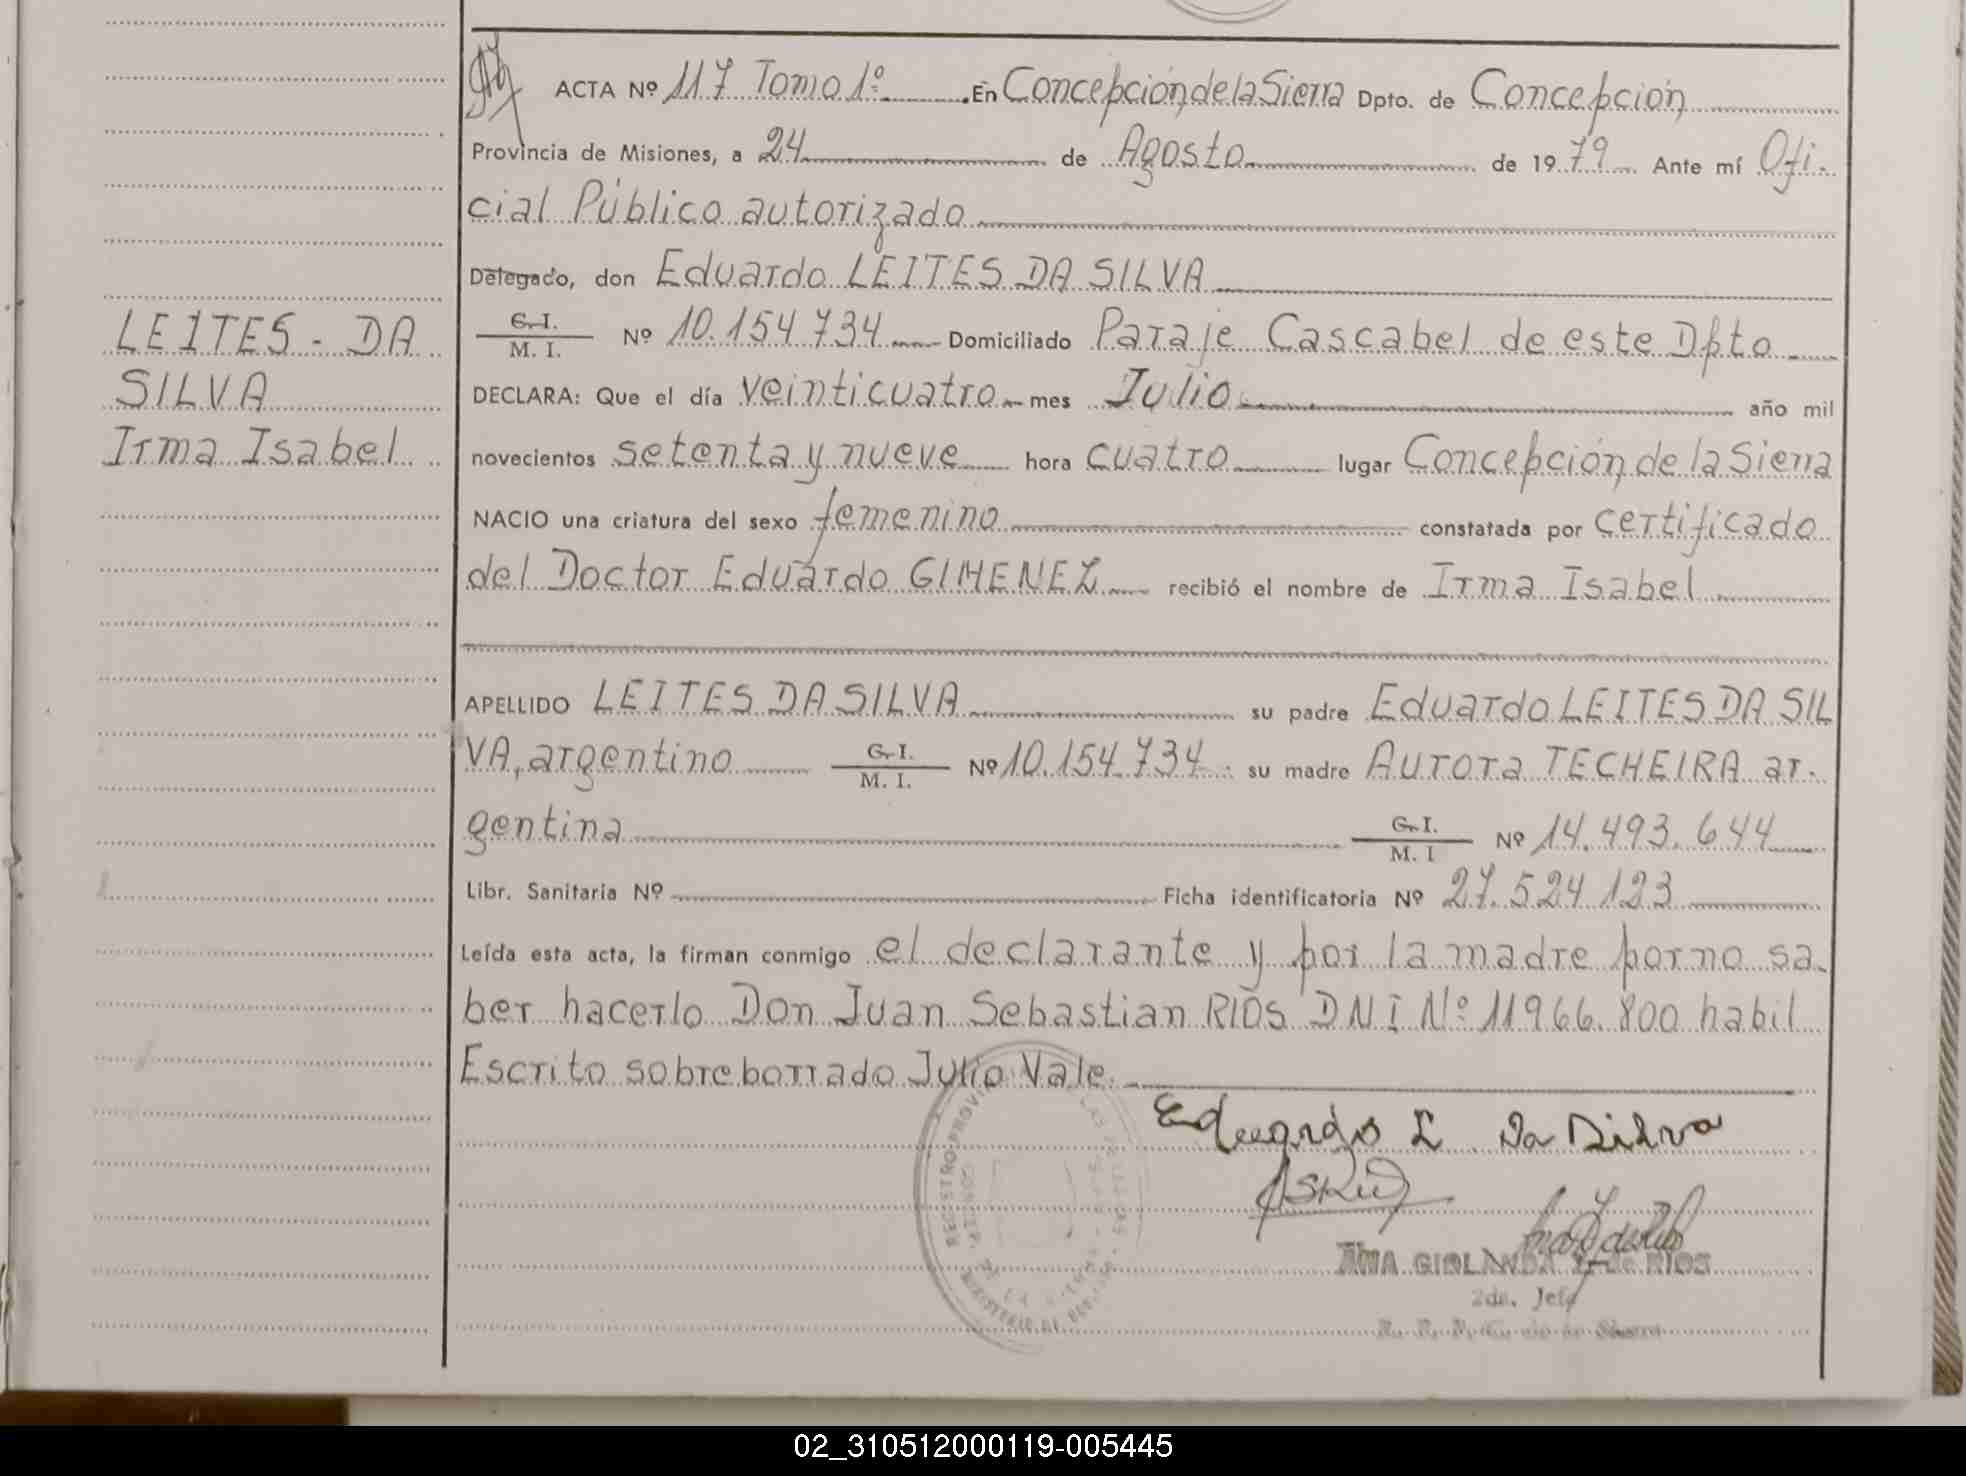 ACTA Nº 117 Tomo 1º En Concepción de la Sierra Dpto. de Concepción
Provincia de Misiones, a 24 de Agosto de 1979 Ante mí Ofi-
cial Público autorizado
Delegado, don Eduardo LEITES DA SILVA
C. I.
M. I. Nº 10.154.734 Domiciliado Paraje Cascabel de este Dpto
LEITES - DA
SILVA
Irma Isabel
DECLARA: Que el día veinticuatro mes Julio año mil
novecientos setenta y nueve hora cuatro lugar Concepción de la Sierra
NACIO una criatura del sexo femenino constatada por certificado
del Doctor Eduardo GIMENEZ recibió el nombre de Irma Isabel
APELLIDO LEITES DA SILVA su padre Eduardo LEITES DA SIL
VA, argentino C. I. M. I. Nº 10.154.734. su madre Aurora TECHEIRA ar-
gentina C. I. M. I Nº 14.493.644
Libr. Sanitaria Nº Ficha identificatoria Nº 27.524.123
Leída esta acta, la firman conmigo el declarante y por la madre por no sa-
ber hacerlo Don Juan Sebastian RIOS DNI Nº 11966.800 habil
Escrito sobre borrado Julio Vale.
Eduardo L Da Silva
ANA GIRLANDA de RIOS
2da. Jefe
REGISTRO PROVI
DE LAS
MINISTERIO DE
02_310512000119-005445